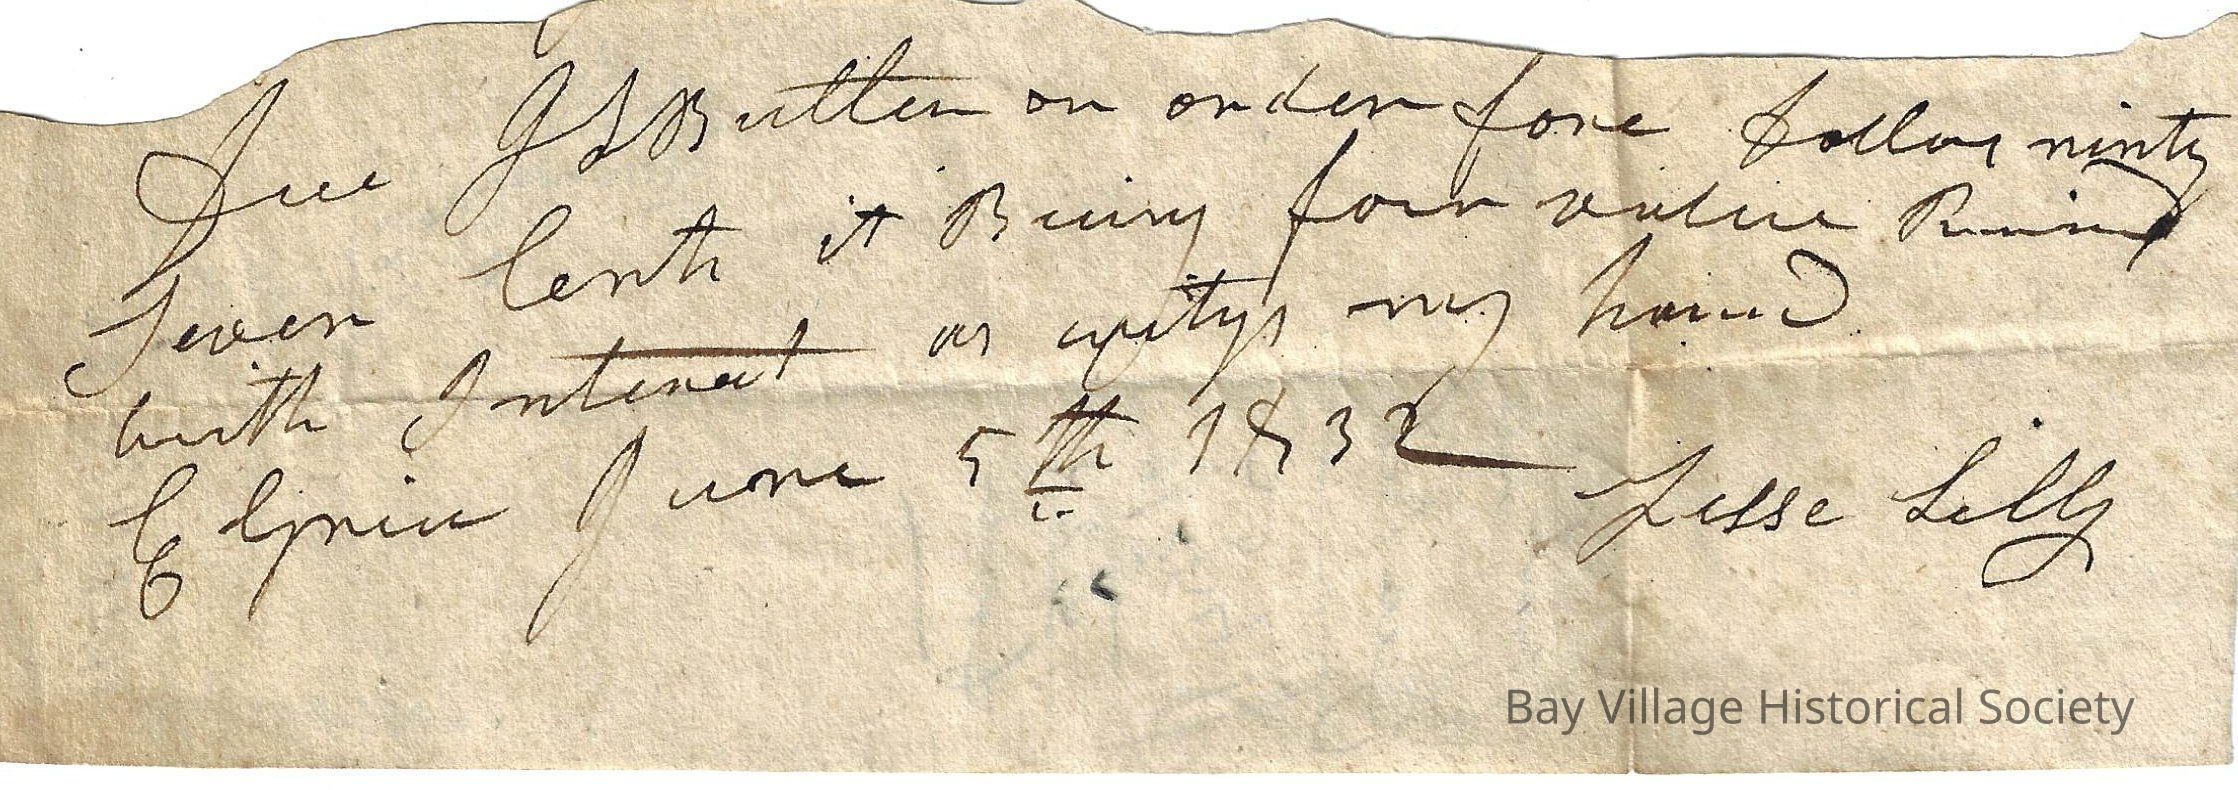 Due J S Butler on order fore Dollars ninty
Seven Cents it Being for value Recived
with Interest as wityss my hand
Elyria June 5th 1832
Jesse Lilly
Bay Village Historical Society